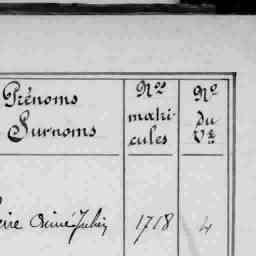 Prénoms
Surnoms
Nos
matri-
cules
No
du
Vre
Aimé Julien 1718 4